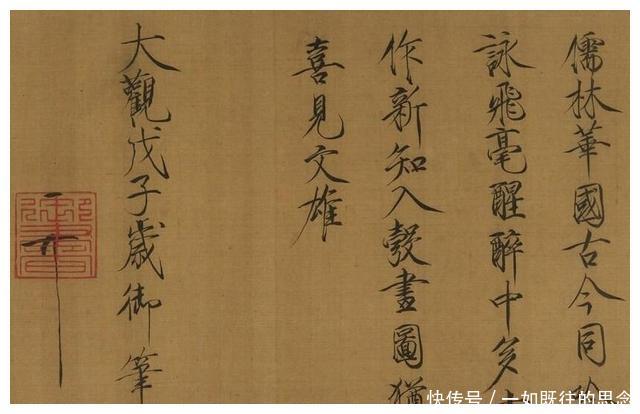 儒林華國古今同
詠飛毫醒醉中多
作新知入彀畫圖猶
喜見文雄
大觀戊子歲御筆
御書
快传号 / 一如既往的思念